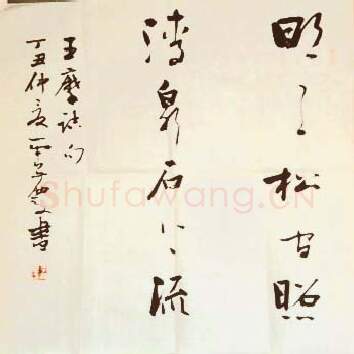 明月松間照
清泉石上流
王摩詰句
丁丑仲夏書
Shufawang.CN